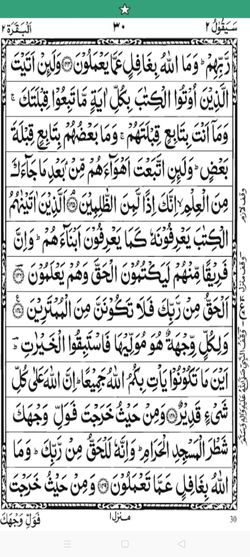 سَيَقُوْلُ ٢ ٣٠ اَلْبَقَرَة ٢
رَّبِّهِمْ ؕ وَمَا اللّٰهُ بِغَافِلٍ عَمَّا يَعْمَلُوْنَ ﴿۱۴۴﴾ وَلَىِٕنْ اَتَيْتَ
الَّذِيْنَ اُوْتُوا الْكِتٰبَ بِكُلِّ اٰيَةٍ مَّا تَبِعُوْا قِبْلَتَكَ ۚ
وَمَاۤ اَنْتَ بِتَابِعٍ قِبْلَتَهُمْ ۚ وَمَا بَعْضُهُمْ بِتَابِعٍ قِبْلَةَ
بَعْضٍ ؕ وَلَىِٕنِ اتَّبَعْتَ اَهْوَآءَهُمْ مِّنْۢ بَعْدِ مَا جَآءَكَ
مِنَ الْعِلْمِ ۙ اِنَّكَ اِذًا لَّمِنَ الظّٰلِمِيْنَ ﴿۱۴۵﴾ اَلَّذِيْنَ اٰتَيْنٰهُمُ
الْكِتٰبَ يَعْرِفُوْنَهٗ كَمَا يَعْرِفُوْنَ اَبْنَآءَهُمْ ؕ وَاِنَّ
فَرِيْقًا مِّنْهُمْ لَيَكْتُمُوْنَ الْحَقَّ وَهُمْ يَعْلَمُوْنَ ﴿۱۴۶﴾
اَلْحَقُّ مِنْ رَّبِّكَ فَلَا تَكُوْنَنَّ مِنَ الْمُمْتَرِيْنَ ﴿۱۴۷﴾
وَلِكُلٍّ وِّجْهَةٌ هُوَ مُوَلِّيْهَا فَاسْتَبِقُوا الْخَيْرٰتِ ؕ
اَيْنَ مَا تَكُوْنُوْا يَاْتِ بِكُمُ اللّٰهُ جَمِيْعًا ؕ اِنَّ اللّٰهَ عَلٰى كُلِّ
شَيْءٍ قَدِيْرٌ ﴿۱۴۸﴾ وَمِنْ حَيْثُ خَرَجْتَ فَوَلِّ وَجْهَكَ
شَطْرَ الْمَسْجِدِ الْحَرَامِ ؕ وَاِنَّهٗ لَلْحَقُّ مِنْ رَّبِّكَ ؕ وَمَا
اللّٰهُ بِغَافِلٍ عَمَّا تَعْمَلُوْنَ ﴿۱۴۹﴾ وَمِنْ حَيْثُ خَرَجْتَ
فَوَلِّ وَجْهَكَ منزل ۱ 30